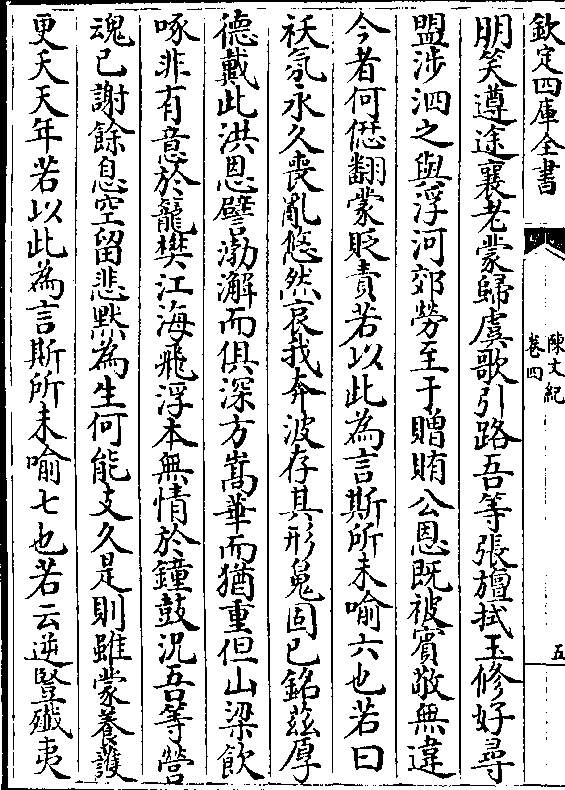 欽定四庫全書
陳文紀
卷四
五
朋笑遵途襄老蒙歸虞歌引路吾等張旜拭玉修好尋
盟涉泗之與浮河郊勞至于贈賄公恩既被賓敬無違
今者何僁翻蒙貶責若以此為言斯所未喻六也若曰
祅氛永久喪亂悠然哀我奔波存其形䰟固已銘兹厚
德戴此洪恩譬渤澥而俱深方嵩華而猶重但山梁飲
啄非有意於籠樊江海飛浮本無情於鐘鼓況吾等營
魂已謝餘息空留悲黙為生何能支久是則雖蒙養護
更夭天年若以此為言斯所未喻七也若云逆豎殲夷